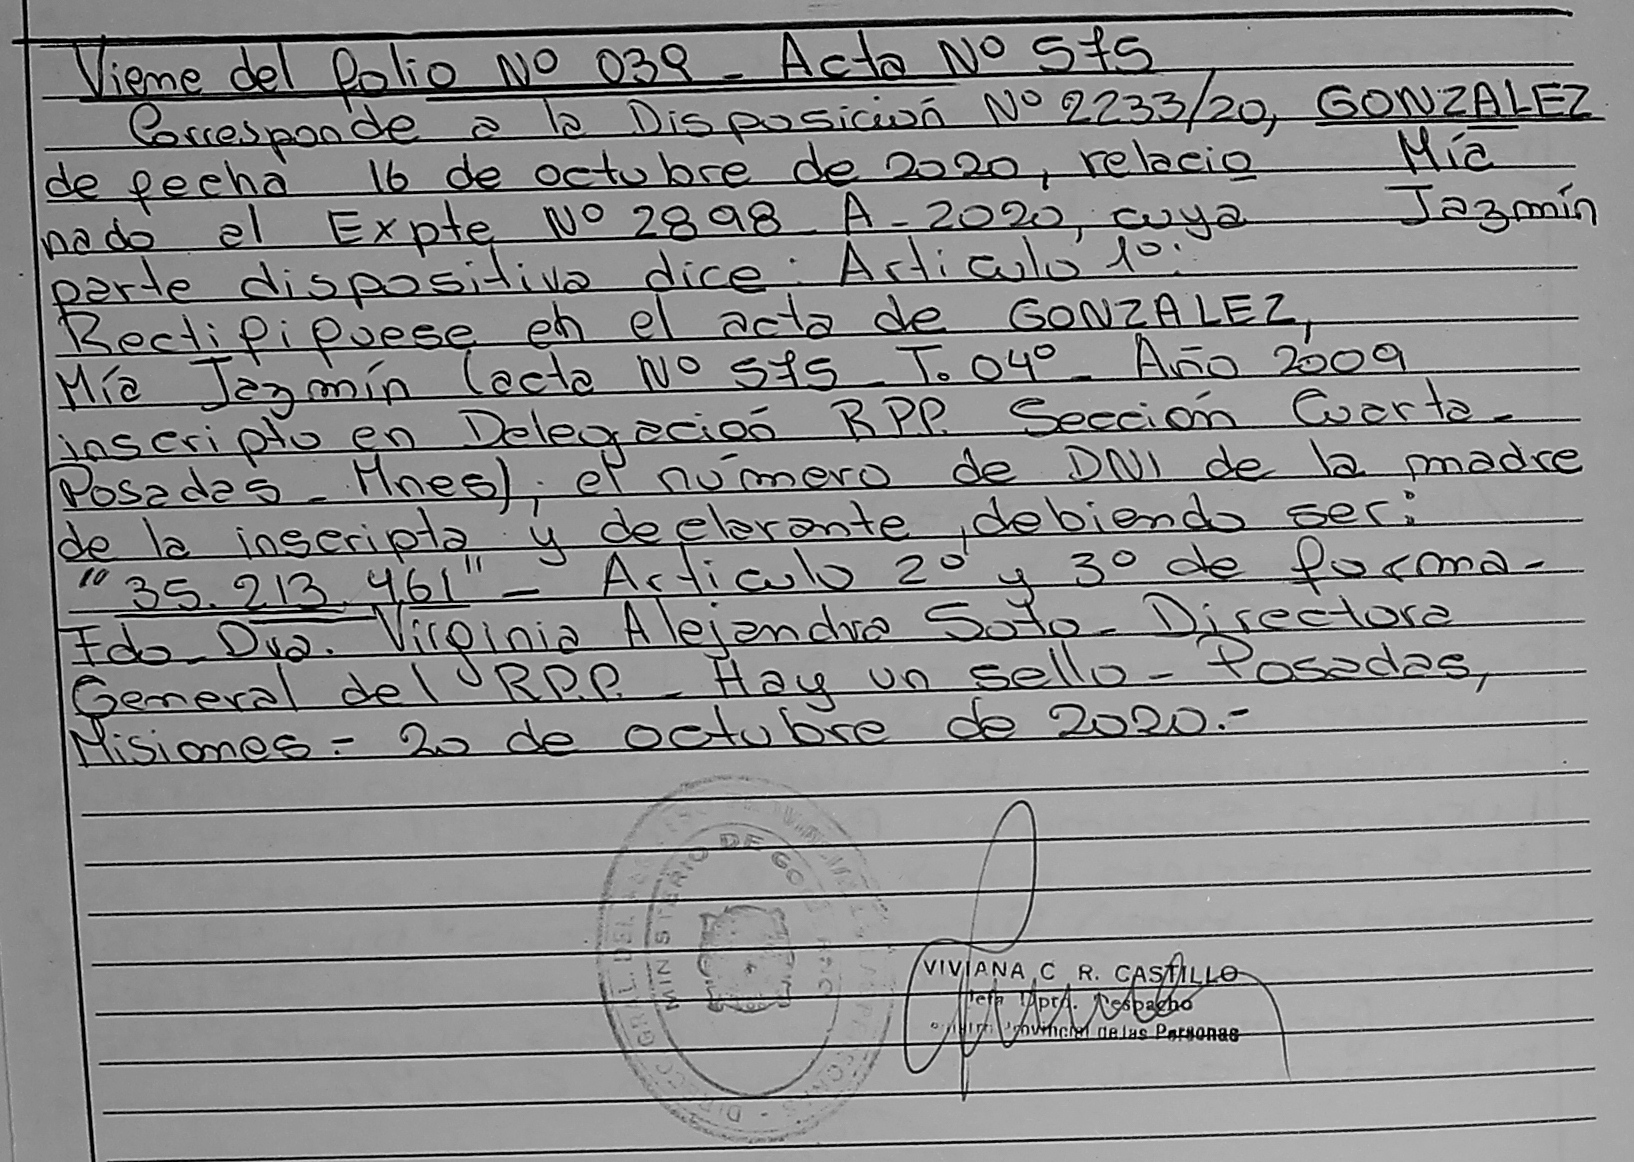 Viene del folio Nº 039 - Acta Nº 575
Corresponde a la Disposición Nº 2233/20, GONZALEZ
de fecha 16 de octubre de 2020, relacio Mía
nado el Expte Nº 2898 A-2020, cuya Jazmín
parte dispositiva dice: Articulo 1º:
Rectifiquese en el acta de GONZALEZ,
Mía Jazmín (acta Nº 575 - T. 04º - Año 2009
inscripto en Delegación R.P.P. Sección Cuarta -
Posadas - Mnes), el número de DNI de la madre
de la inscripta y declarante, debiendo ser:
"35.213.461" - Articulo 2º y 3º de forma -
Fdo. Dra. Virginia Alejandra Soto - Directora
General del R.P.P. - Hay un sello - Posadas,
Misiones = 20 de octubre de 2020.-
MINISTERIO DE
VIVIANA C R. CASTILLO
Jefa Dpto. Despacho
Provincial de las Personas